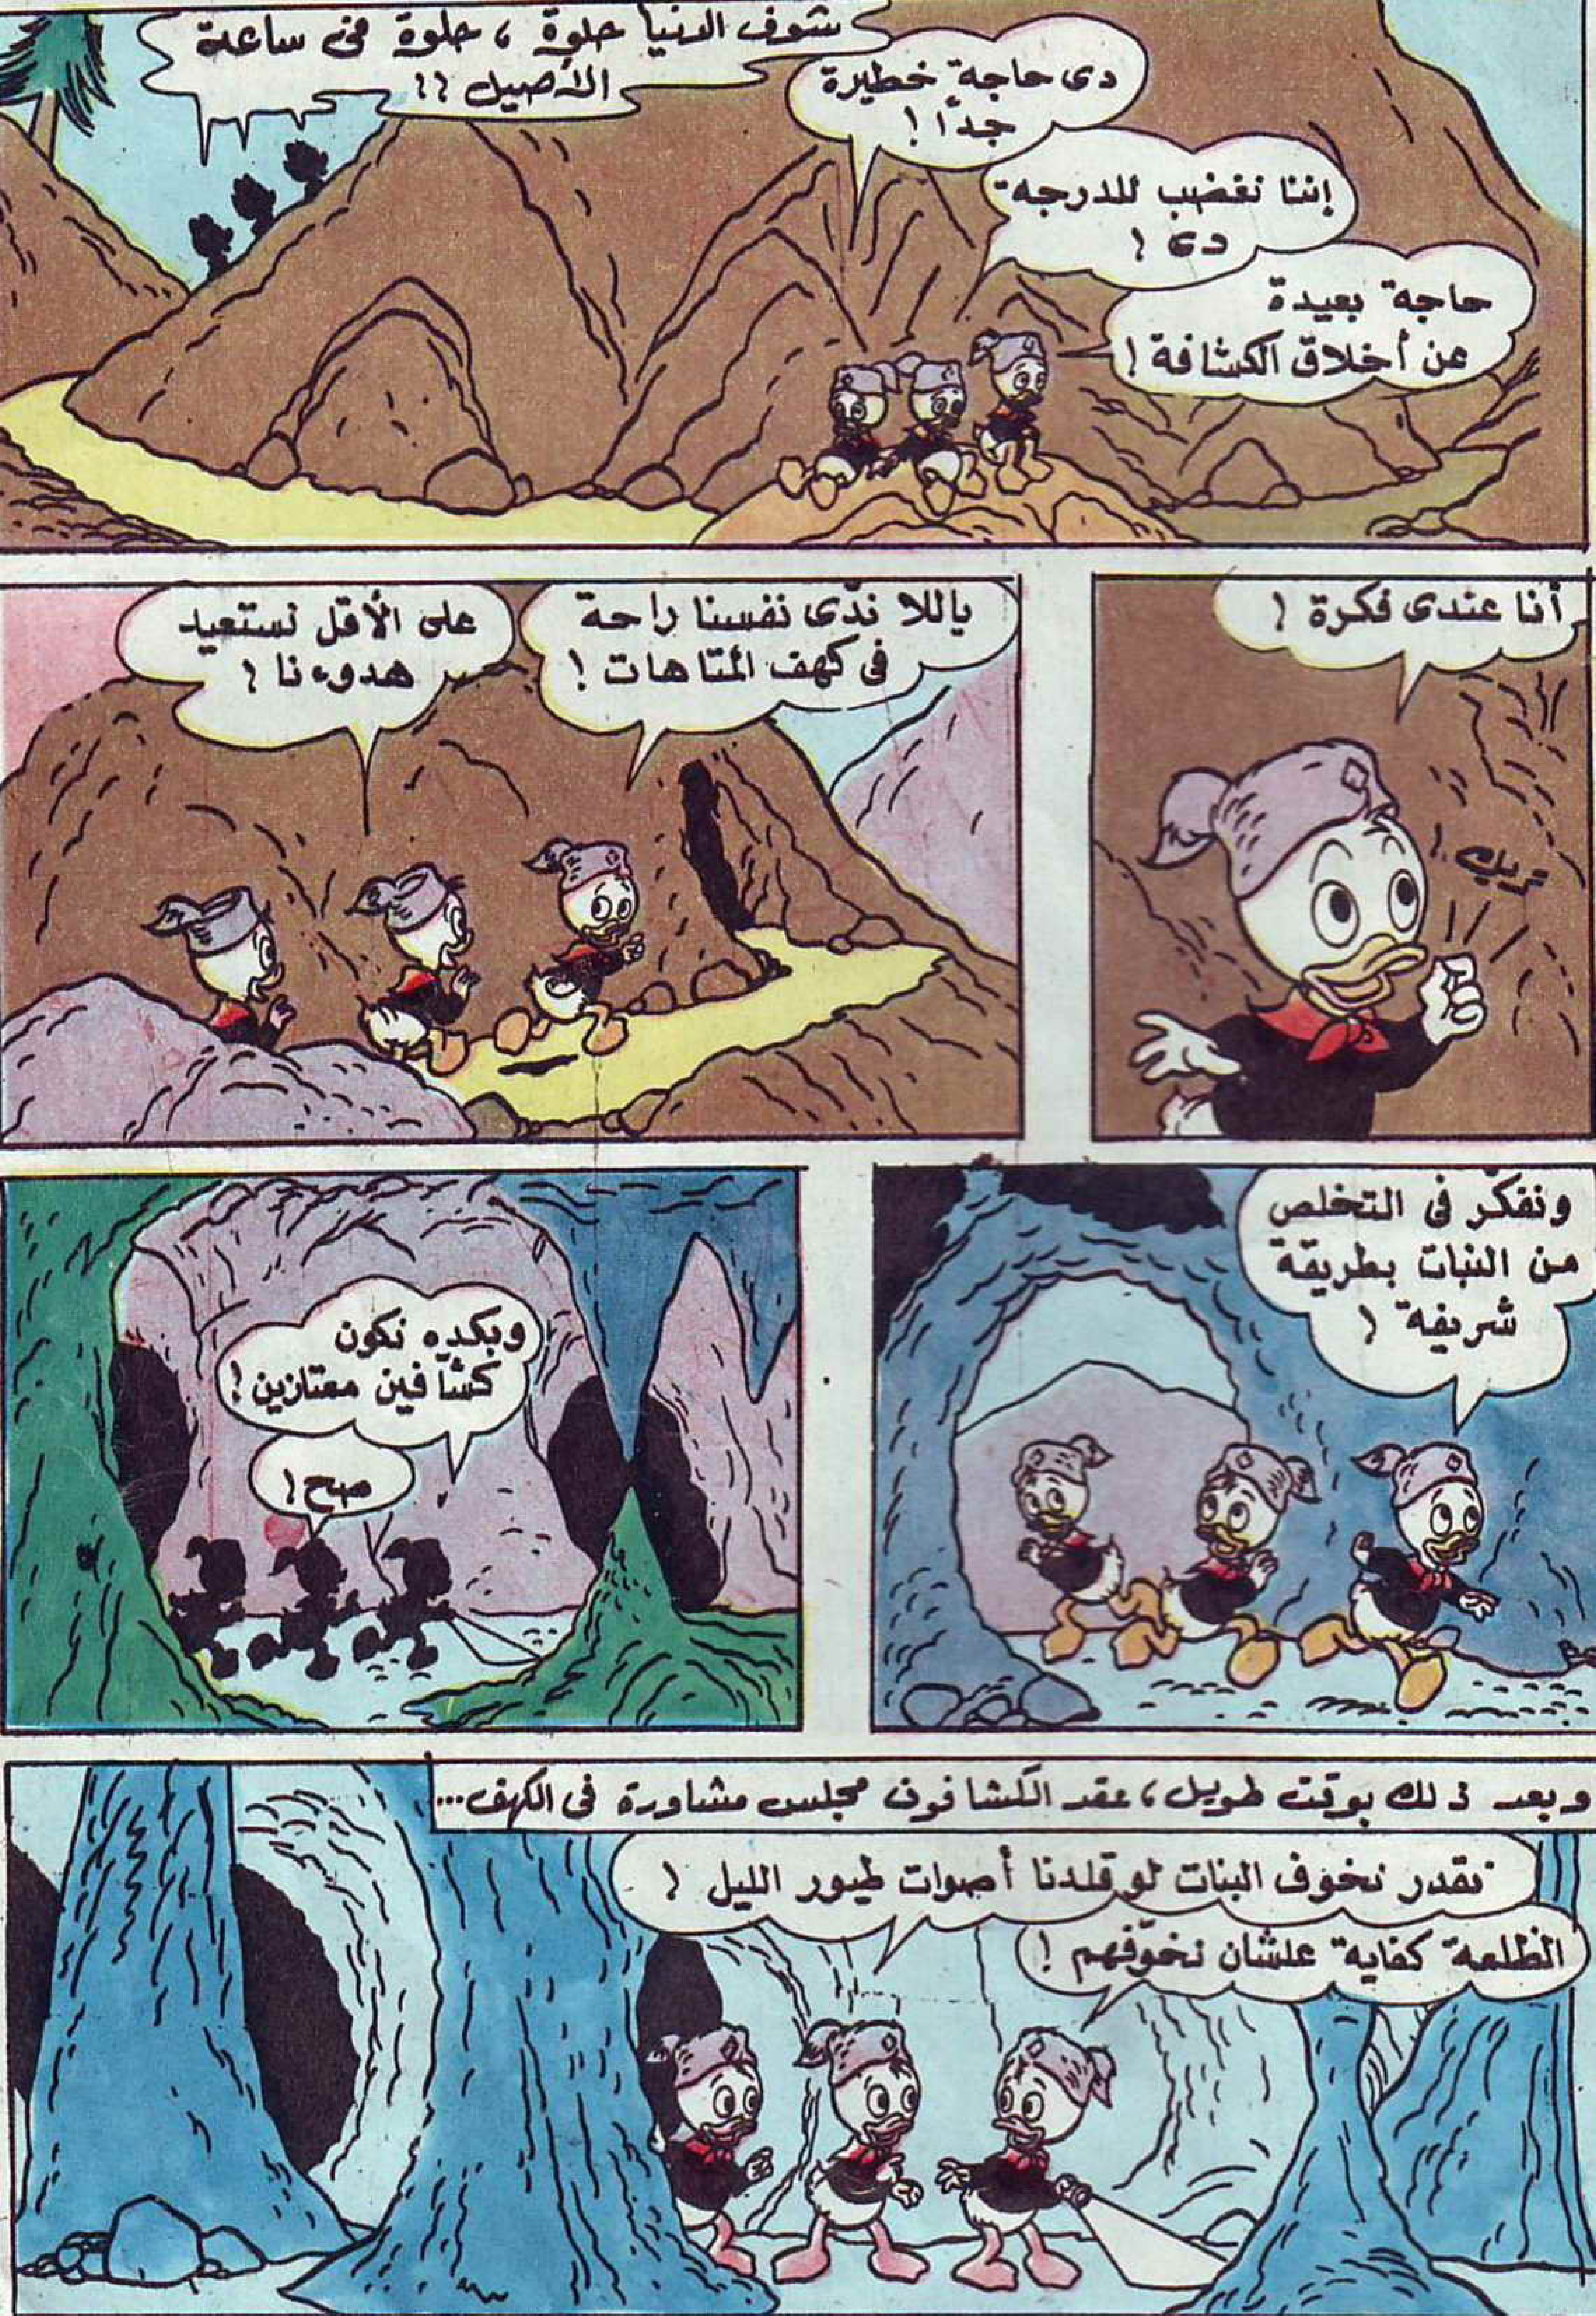 شوف الدنيا حلوة ، حلوة في ساعة
الأصيل !!
دى حاجة خطيرة
جداً !
إننا نغضب للدرجة
دى !
حاجة بعيدة
عن أخلاق الكشافة !
أنا عندى فكرة !
تريك !
ياللا ندّى نفسنا راحة
فى كهف المتاهات !
على الأقل نستعيد
هدوءنا !
ونفكّر فى التخلص
من البنات بطريقة
شريفة !
وبكده نكون
كشّافين ممتازين !
صح !
وبعد ذلك بوقت طويل ، عقد الكشافون مجلس مشاورة فى الكهف...
نقدر نخوف البنات لو قلدنا أصوات طيور الليل !
الظلمة كفاية علشان نخوّفهم !